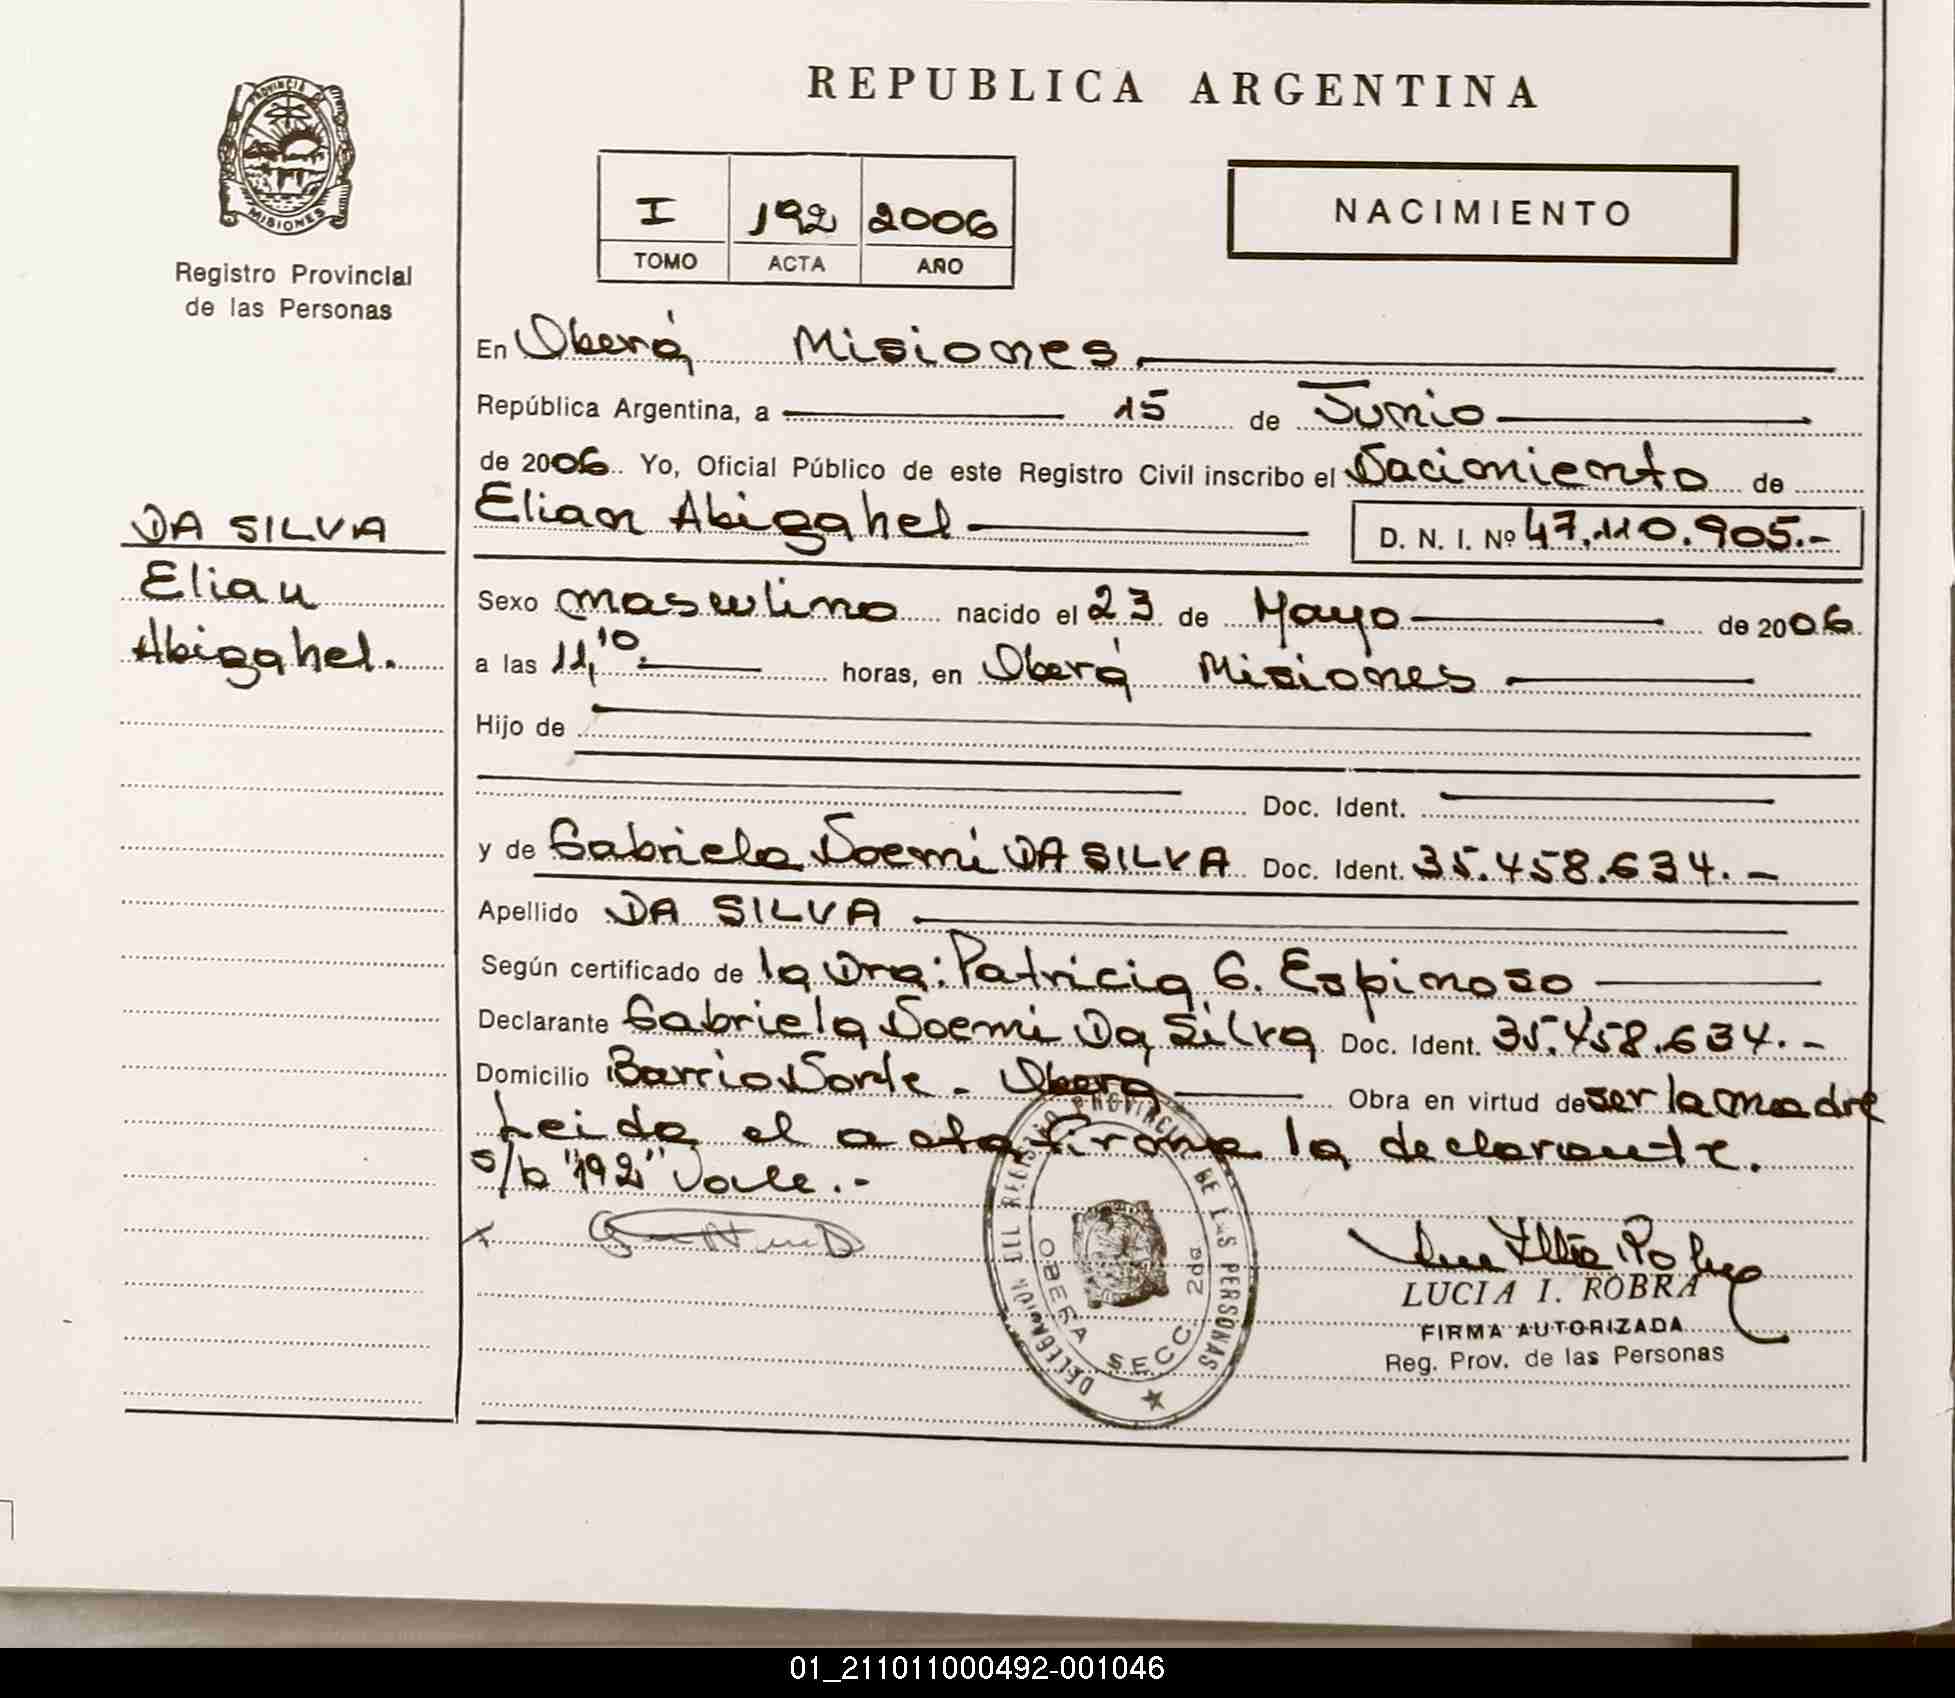 REPUBLICA ARGENTINA
PROVINCIA
MISIONES
Registro Provincial
de las Personas
I 192 2006
TOMO ACTA AÑO
NACIMIENTO
En Oberá Misiones
República Argentina, a 15 de Junio
de 2006. Yo, Oficial Público de este Registro Civil inscribo el Nacimiento de
Elian Abigahel D. N. I. Nº 47.110.905.-
DA SILVA
Elian
Abigahel.
Sexo masculino nacido el 23 de Mayo de 2006
a las 11,10 horas, en Oberá Misiones
Hijo de
Doc. Ident.
y de Gabriela Noemi DA SILVA Doc. Ident. 35.458.634.-
Apellido DA SILVA
Según certificado de la Dra: Patricia G. Espinoso
Declarante Gabriela Noemi Da Silva Doc. Ident. 35.458.634.-
Domicilio Barrio Norte - Oberá Obra en virtud de ser la madre
Leida el acta firma la declarante.
s/b "192" Vale.-
x
DELEGACIÓN DEL REGISTRO PROVINCIAL DE LAS PERSONAS
OBERA SECC. 2da
LUCIA I. ROBRA
FIRMA AUTORIZADA
Reg. Prov. de las Personas
01_211011000492-001046